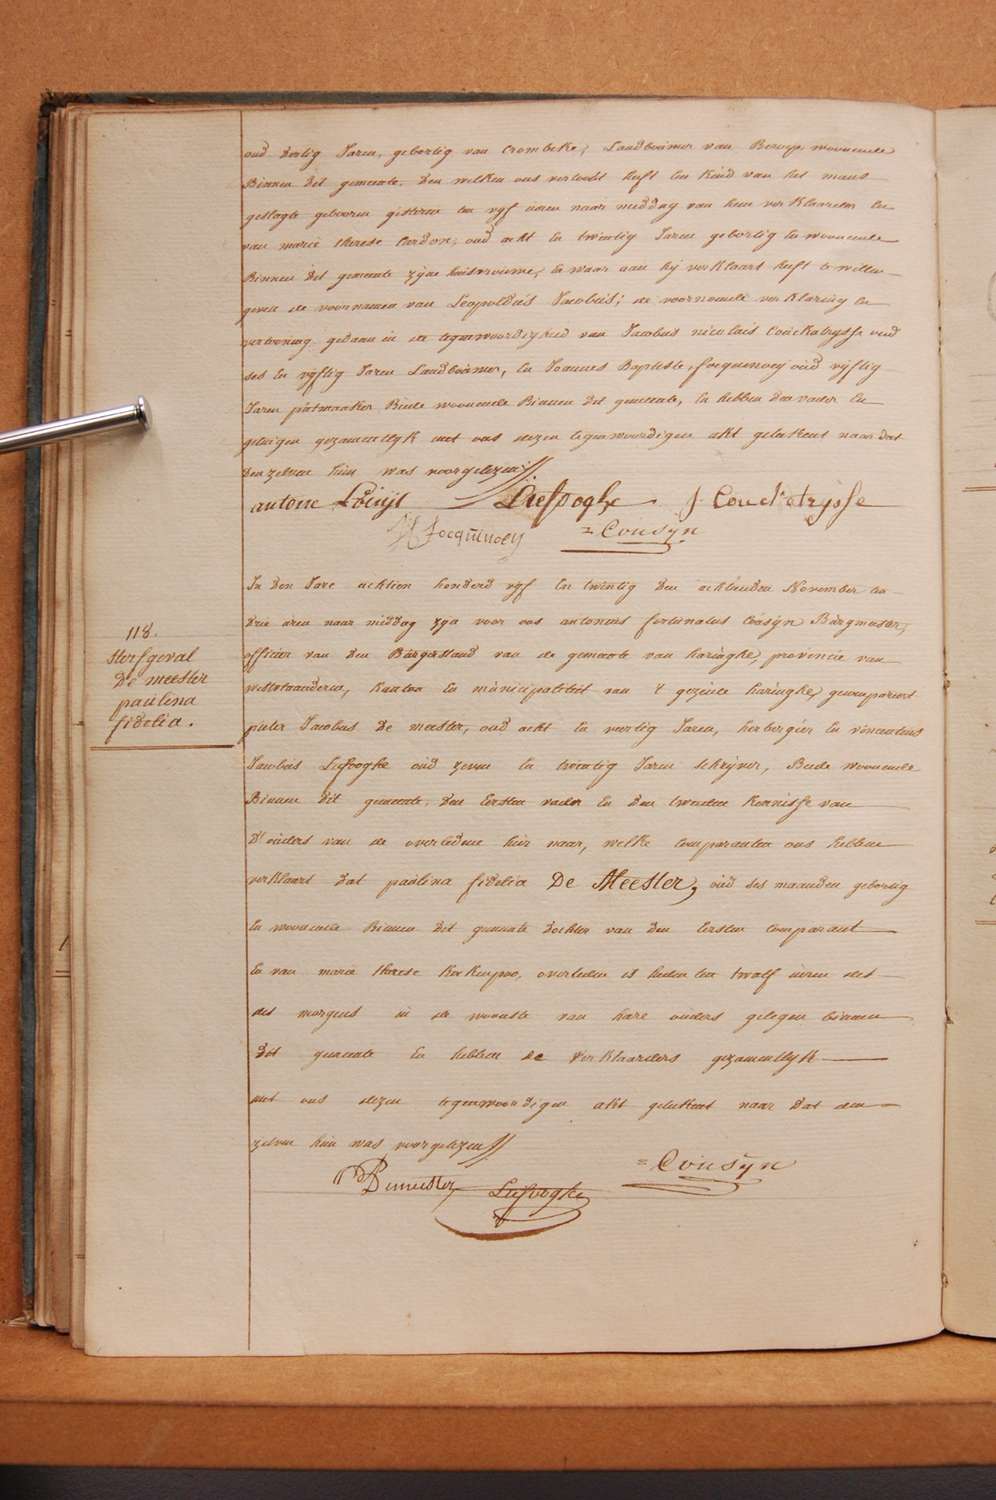 oud dertig Jaren, gebortig van Crombeke, Landbouwer van Beroep woonende
Binnen dit gemeente, den welken ons vertoont heeft een kind van het mans
geslagte gebooren gisteren ten vyf uren naar middag van hem verklaarder en
van marie therese Cardon, oud acht en twintig Jaren gebortig en woonende
Binnen dit gemeente zyne huisvrouwe, en waar aan hij verklaart heeft te willen
geven de voornamen van Leopoldus Jacobus; de voornoemde verklaring en
vertooning gedaan in de tegenwoordigheid van Jacobus nicolais Couckatrysse oud
ses en vyftig Jaren Landbouwer, en Joannes Baptiste Jocquenoey oud vyftig
Jaren Beide woonende Binnen dit gemeente, en hebben den vader en
getuigen gezamentlyk met ons dezen tegenwoordigen akt geteekent naar dat
den zelven hun was voorgelezen
antone Louijs Liefooghe J. Couckatrysse
Jocquenoey = Cousyn
In den Jare achtien honderd vyf en twintig den achtienden November ten
drie uren naar middag zyn voor ons antonius fortunatus Cousyn Burgmeester,
officier van den Burgerstand van de gemeente van haringhe, provincie van
westvlaanderen, kanton en municipaliteit van 't gezeide haringhe, gecompareert
pieter Jacobus De meester, oud acht en veertig Jaren, herbergier en vincentius
Jacobus Liefooghe oud zeven en twintig Jaren schryver, Beide woonende
Binnen dit gemeente, den Eersten vader en den tweeden kennisse van
D'ouders van de overledene hier naar, welke comparanten ons hebben
verklaart dat paulina fidelia De Meester, oud ses maanden gebortig
En woonende Binnen dit gemeente dochter van den Eersten comparant
En van marie therese overleden is heden ten twalf uren des
des morgens in de woonste van hare ouders gelegen binnen
dit gemeente En hebben de verklaarders gezamentlyk
met ons dezen tegenwoordigen akt geteekent naar dat den
zelven hun was voorgelezen
Demeester Liefooghe = Cousyn
118.
sterfgeval
De meester
paulina
fidelia.